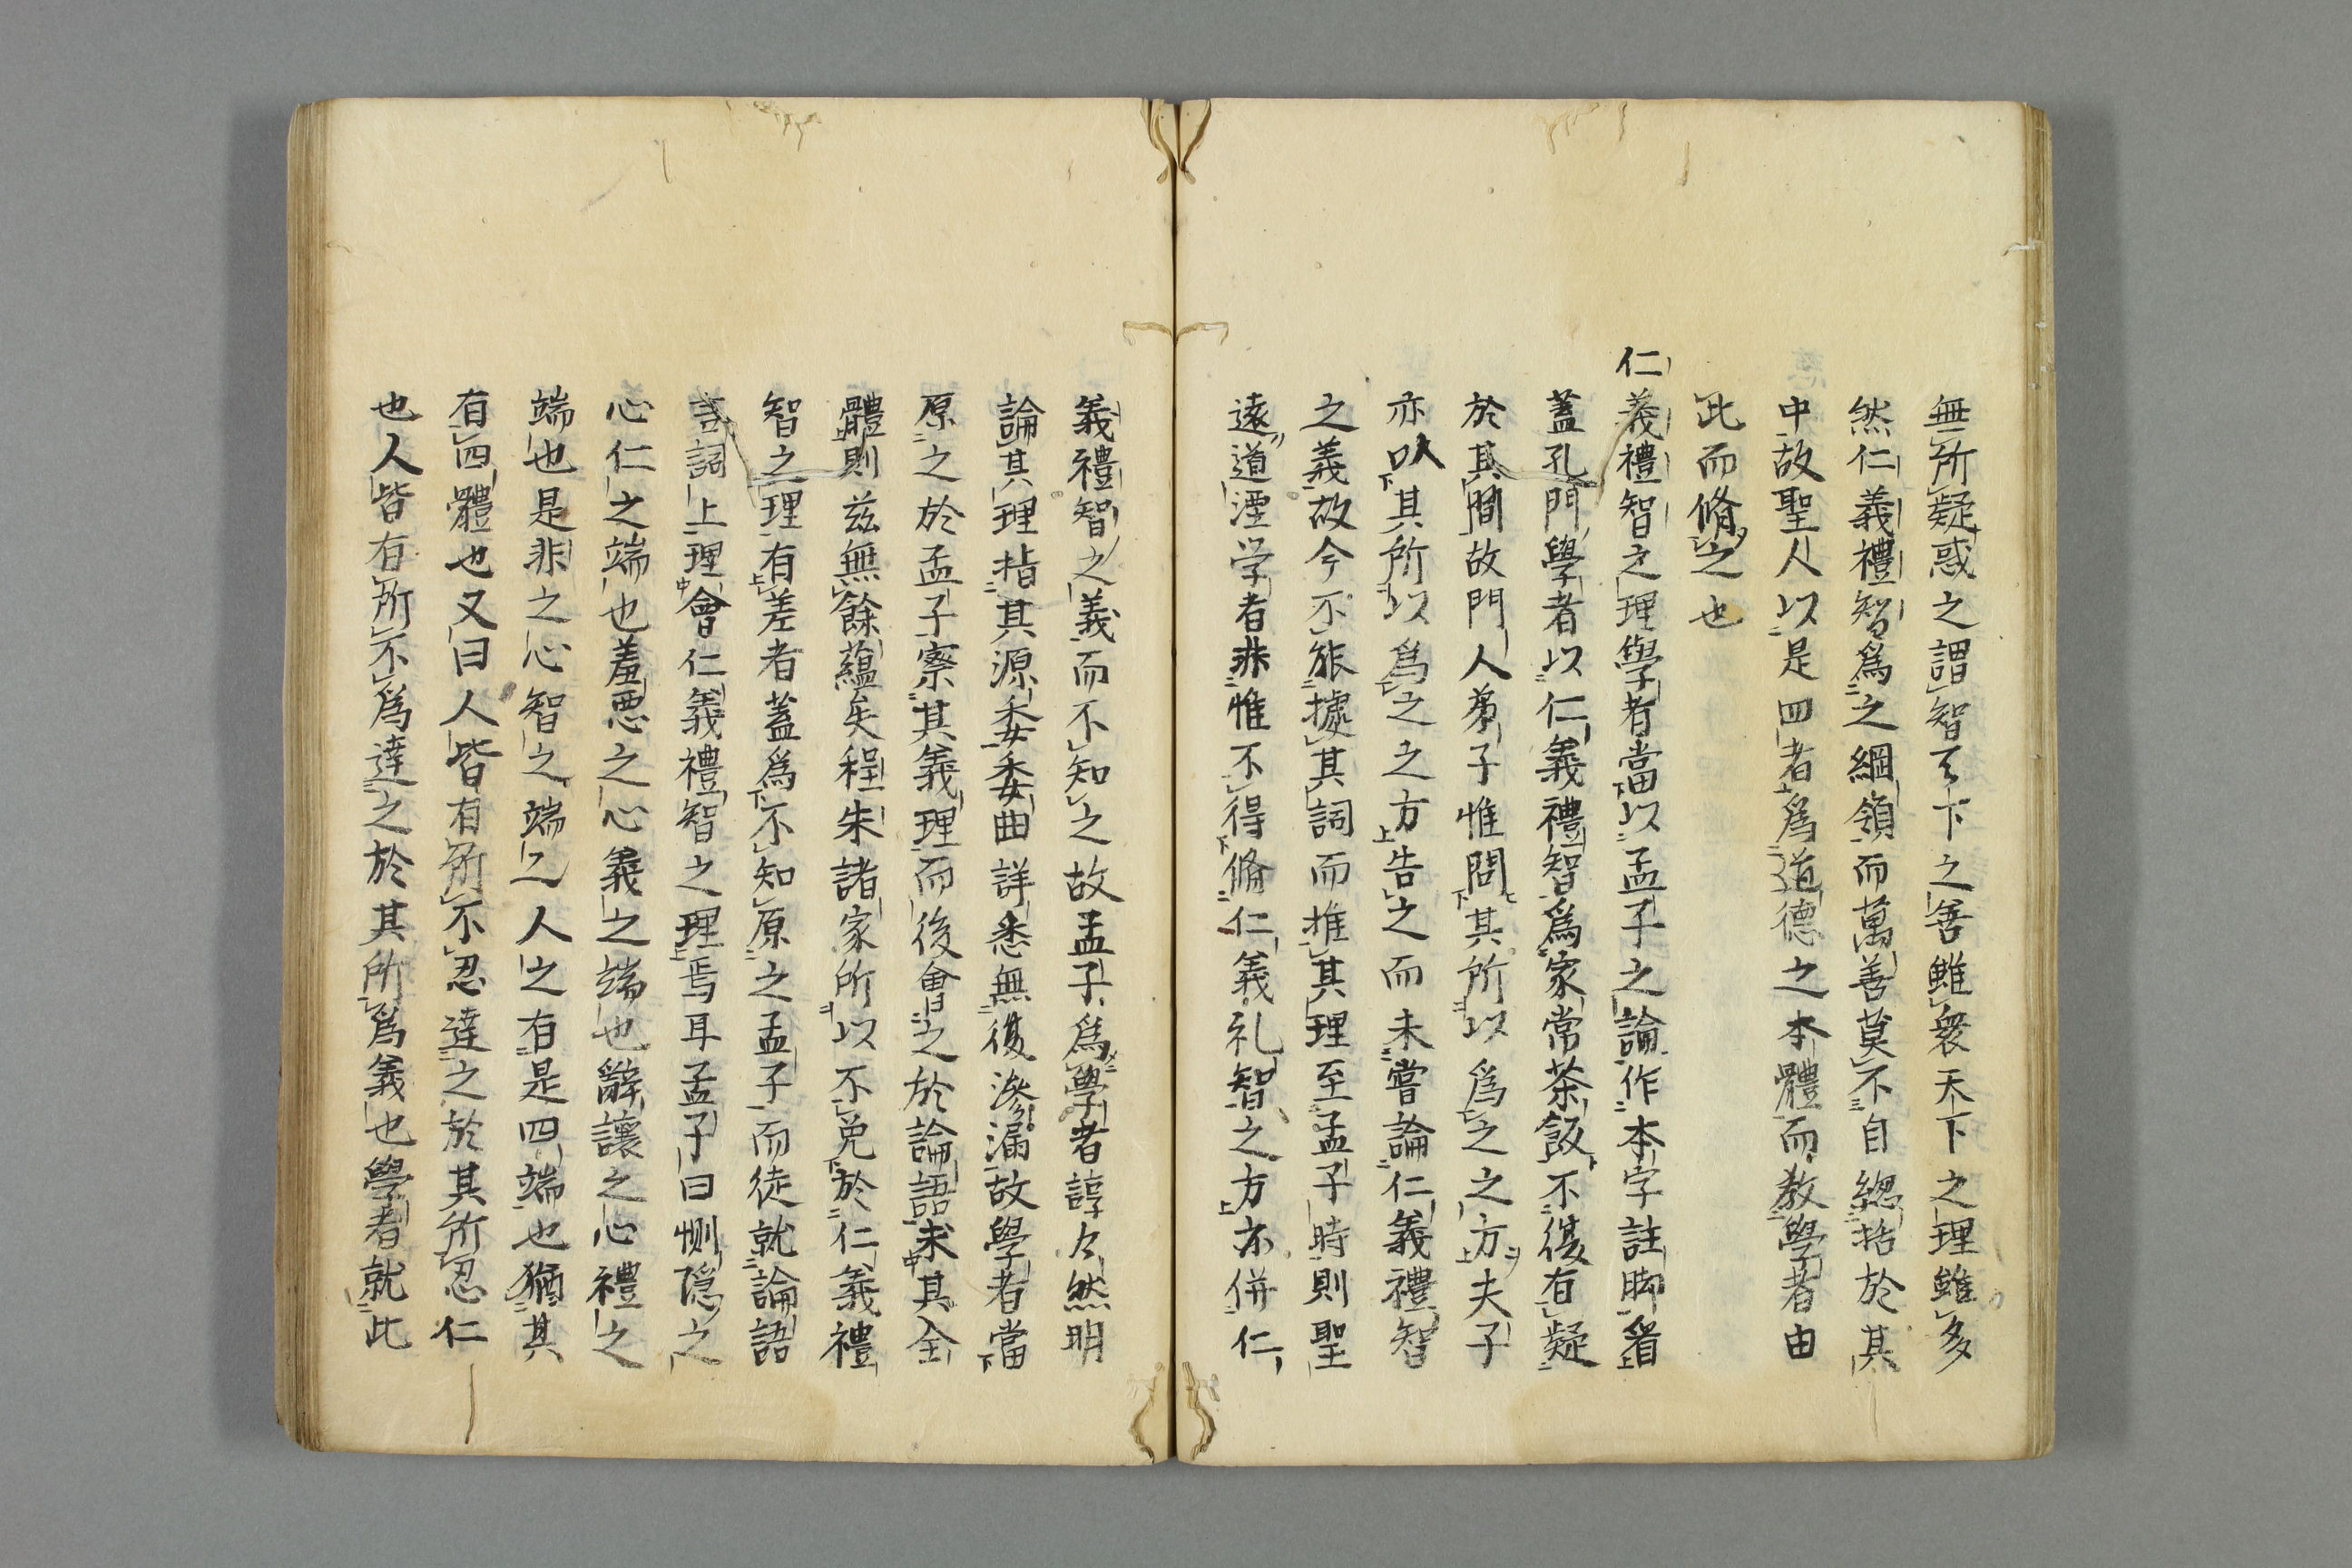 無所疑惑之謂智天下之善雖衆天下之理雖多
然仁義禮智爲之綱領而萬善莫不自總括於其
中故聖人以是四者爲道德之本體而教學者由
此而脩之也
仁義禮智之理學者當以孟子之論作本字註脚看
蓋孔門學者以仁義禮智爲家常茶飯不復有疑
於其間故門人弟子惟問其所以爲之之方夫子
亦以其所以爲之之方告之而未嘗論仁義禮智
之義故今不能據其詞而推其理至孟子時則聖
遠道湮学者非惟不得脩仁義礼智之方亦併仁
義禮智之義而不知之故孟子爲學者諄々然明
論其理指其源委委曲詳悉無復滲漏故學者當
原之於孟子察其義理而後會之於論語求其全
體則茲無餘蘊矣程朱諸家所以不免於仁義禮
智之理有差者蓋爲不知原之孟子而徒就論語
言詞上理會仁義禮智之理焉耳孟子曰惻隠之
心仁之端也羞悪之心義之端也辭讓之心禮之
端也是非之心智之端也人之有是四端也猶其
有四體也又曰人皆有所不忍達之於其所忍仁
也人皆有所不爲達之於其所爲義也學者就此